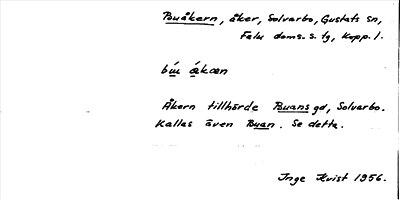 Buåkern, åker, Solvarbo, Gustafs sn,
Falu doms. s. tg, Kopp. l.
Åkern tillhörde Buans gd, Solvarbo.
Kallas även Buan. Se detta.
Inge Kvist 1956.